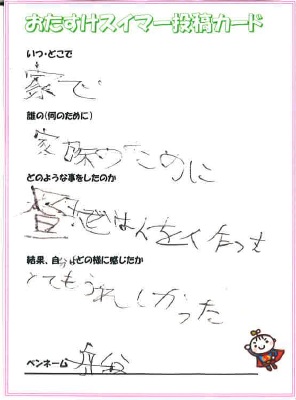 おたすけスイマー投稿カード
いつ・どこで
家で
誰の(何のために)
家族のために
どのような事をしたのか
昼ごはんをく作っも
結果、自分はどの様に感じたか
とてもうれしかった
ペンネーム